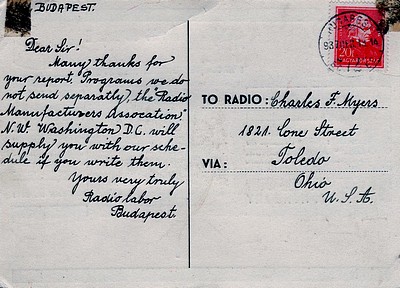 BUDAPEST.
Dear Sir!
Many thanks for
your report. Programs we do
not send separatly, the "Radio
Manufacturers Assocation"
N.W. Washington D.C. will
supply you with our sche-
dule if you write them.
Yours very truly
Radiolabor
Budapest
20f
MAGYARORSZÁG
TO RADIO: Charles F. Myers
1821. Cone Street
VIA: Toledo
Ohio
U.S.A.